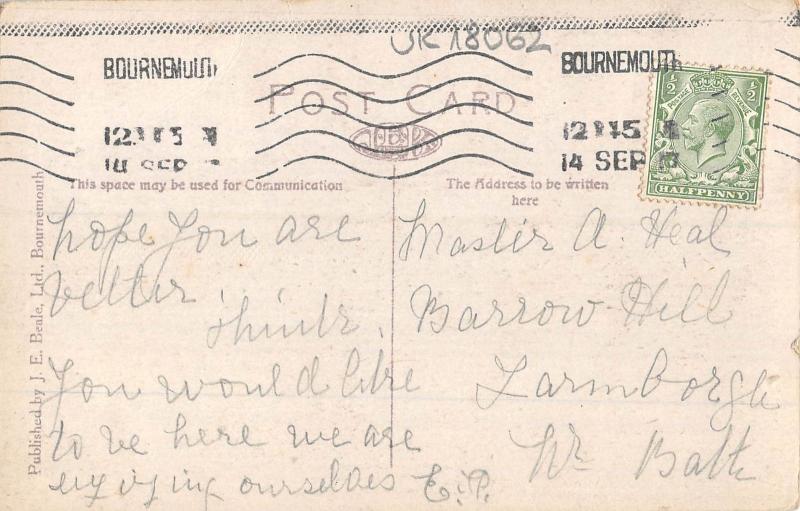 UK 18062
BOURNEMOUTH
BOURNEMOUTH
POST CARD
12 45
12 45
14 SEP
14 SEP 17
½ ½
POSTAGE
HALFPENNY
This space may be used for Communication
The Address to be written
here
Published by J. E. Beale, Ltd., Bournemouth
hope you are
better
think
you would like
to be here we are
enjoying ourselves E.P.
Master A. Heal
Barrow Hill
Farmborgh
Nr Bath